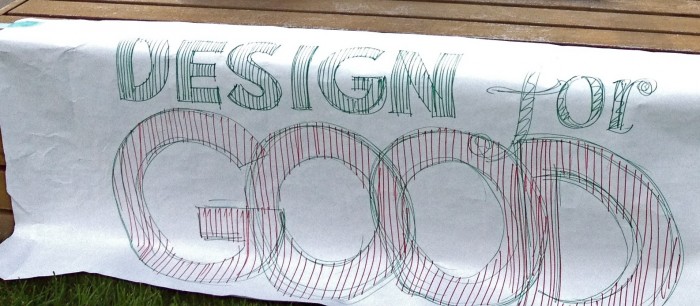 DESIGN for
GOOD